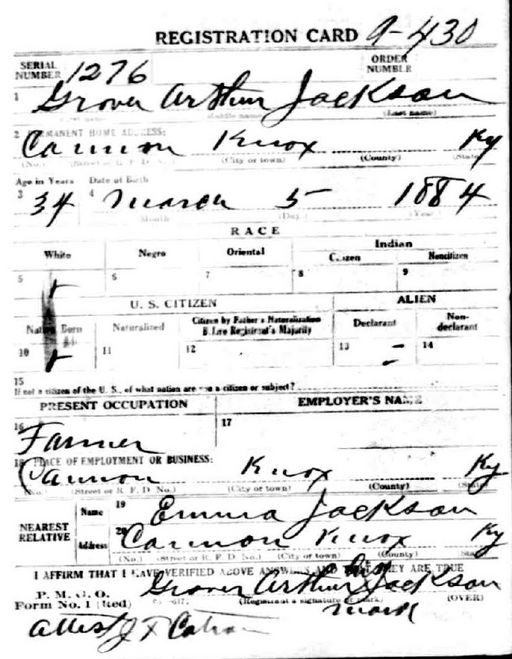 REGISTRATION CARD 9-430
SERIAL NUMBER 1276 ORDER NUMBER
1 Grover Arthur Jackson
(Last name)
2 PERMANENT HOME ADDRESS:
Cannon Knox Ky
(No.) (Street or R. F. D. No.) (City or town) (County) (State)
Age in Years Date of Birth
3 34 4 March 5 1884
Month (Day) (Year)
RACE
White Negro Oriental Indian
Citizen Noncitizen
5 6 7 8 9
U. S. CITIZEN ALIEN
Native Born Naturalized Citizen by Father's Naturalization Before Registrant's Majority Declarant Non-declarant
10 11 12 13 14
15
If not a citizen of the U. S., of what nation are you a citizen or subject?
PRESENT OCCUPATION EMPLOYER'S NAME
16 Farmer 17
18 PLACE OF EMPLOYMENT OR BUSINESS:
Cannon Knox Ky
(No.) (Street or R. F. D. No.) (City or town) (County) (State)
NEAREST RELATIVE Name 19 Emma Jackson
Address 20 Cannon Knox Ky
(No.) (Street or R. F. D. No.) (City or town) (County) (State)
I AFFIRM THAT I HAVE VERIFIED ABOVE ANSWERS AND THAT THEY ARE TRUE
P. M. G. O.
Form No. 1 (Red) Grover Arthur his Jackson
(Registrant's signature or mark) mark (OVER)
Attest J F